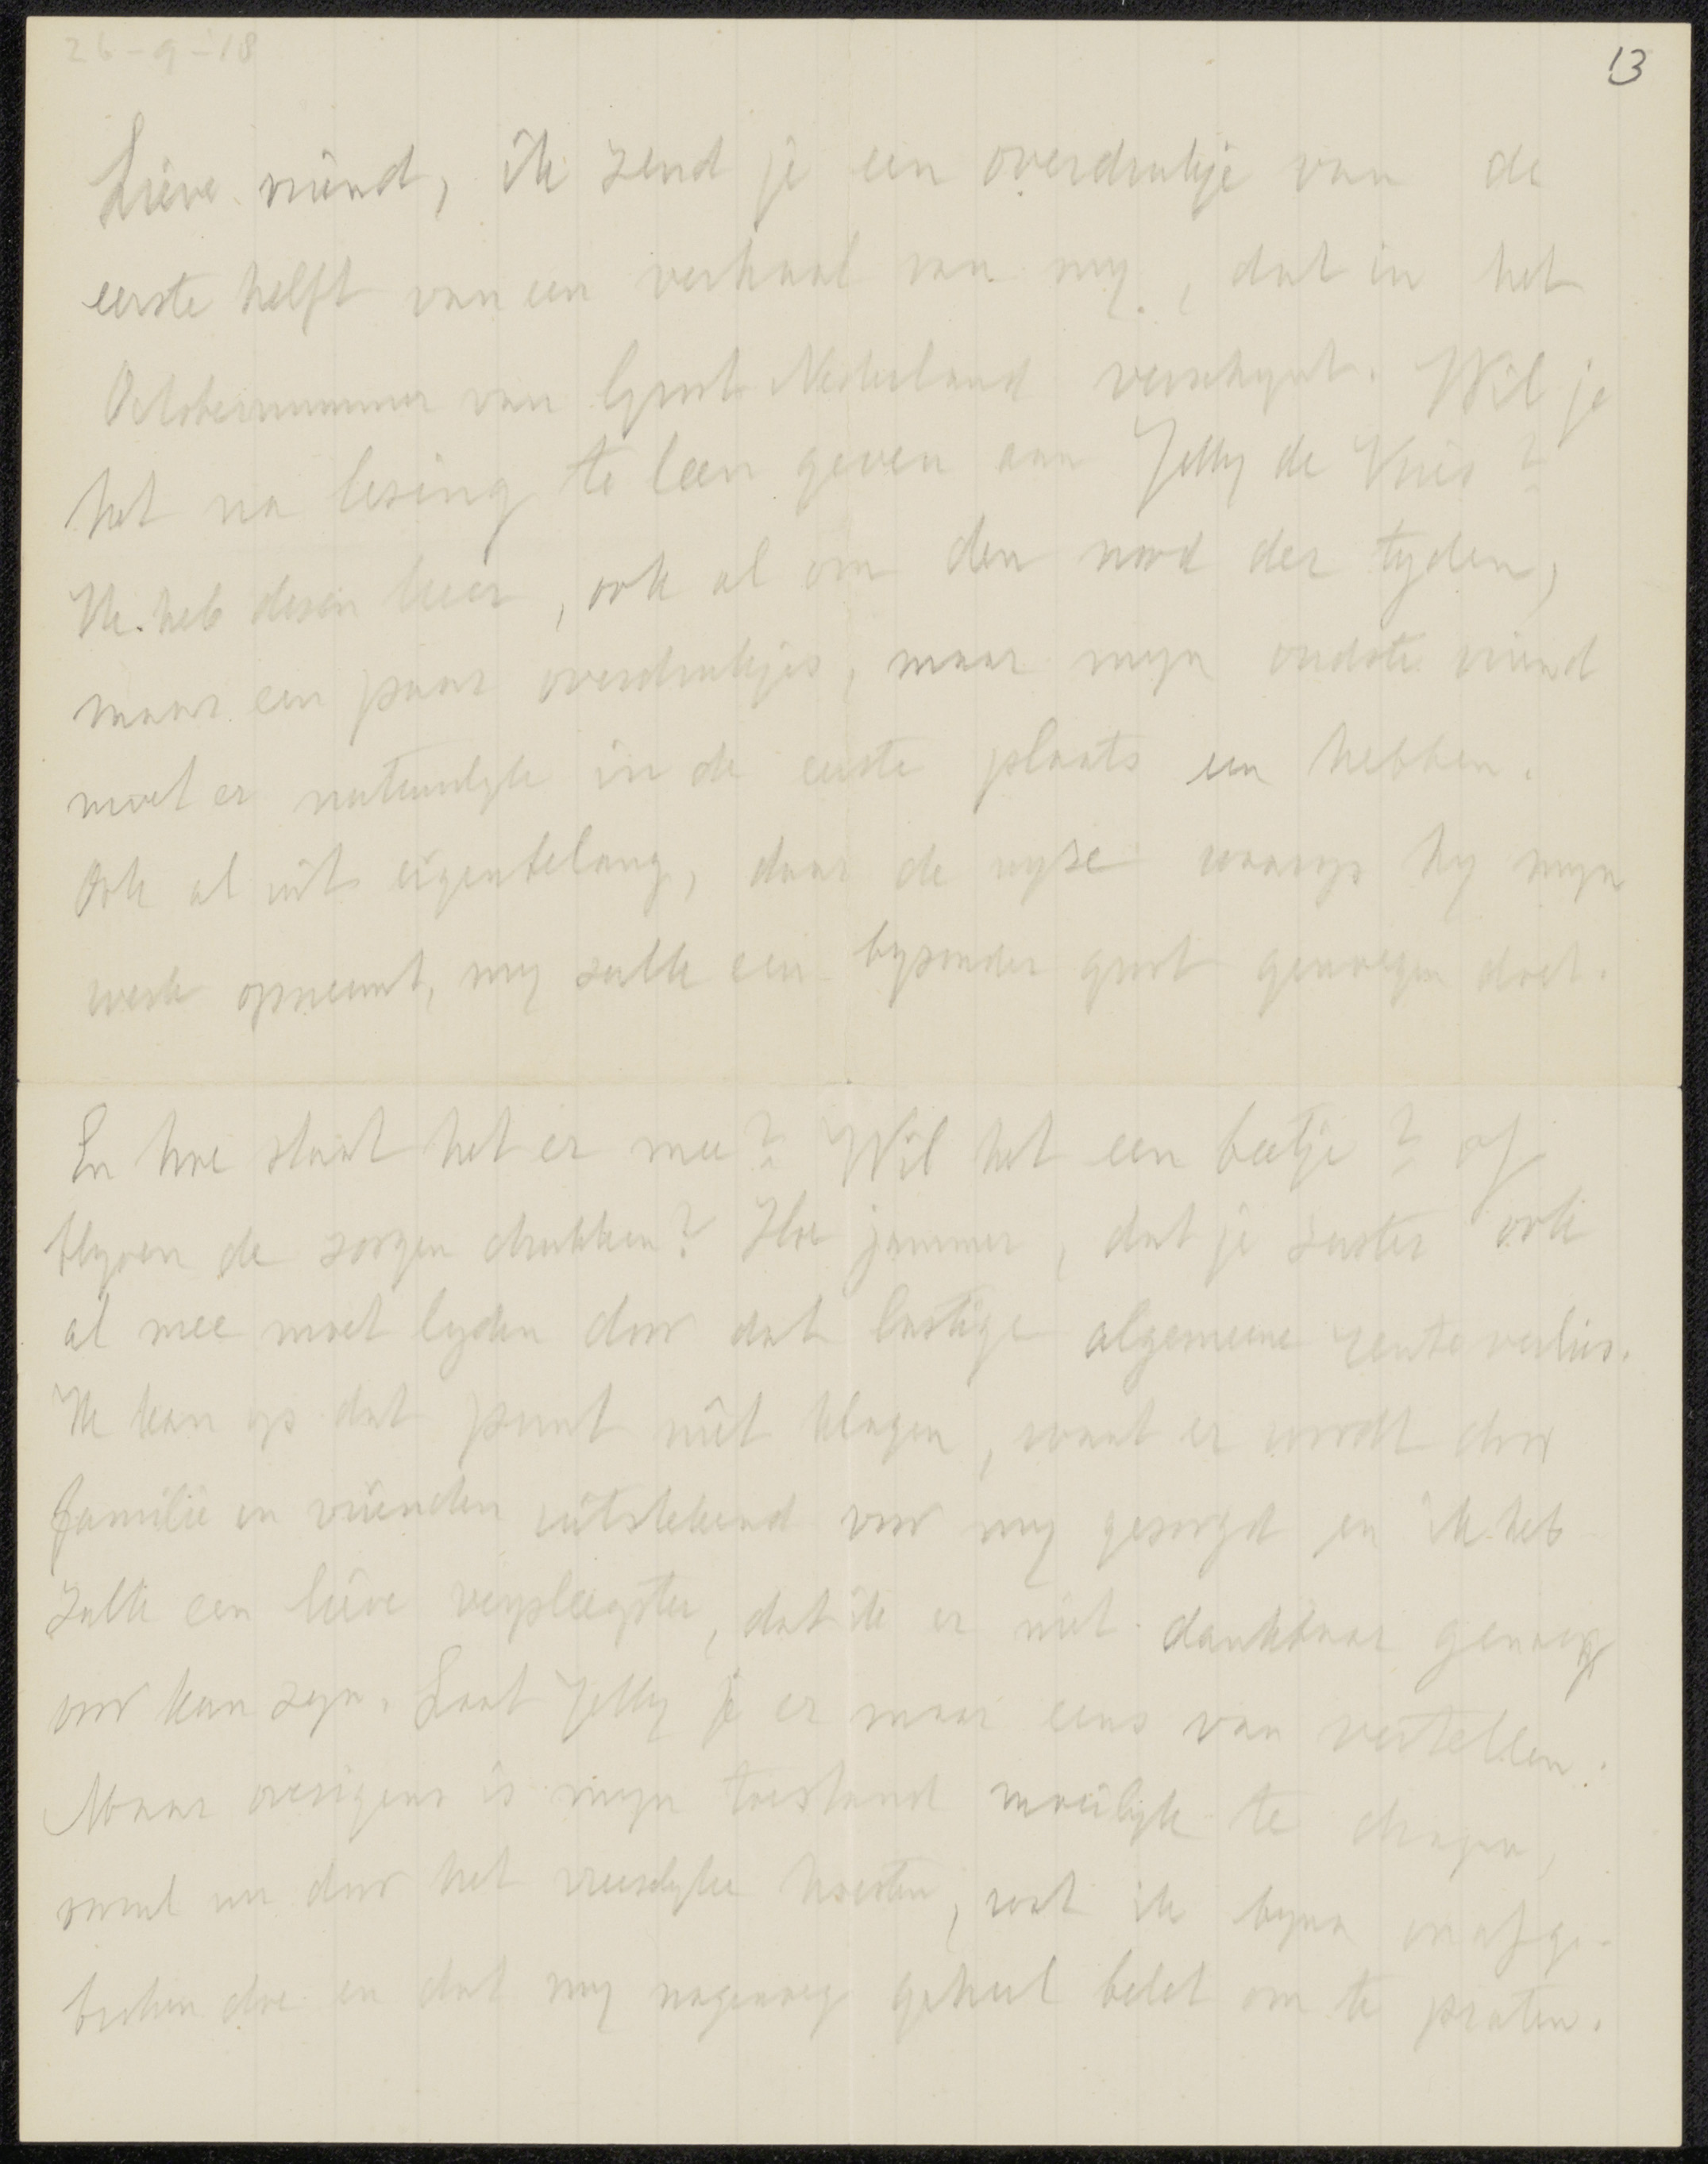 26-9-'18
13
Lieve vriend, ik zend je een overdrukje van de
eerste helft van een verhaal van my, dat in het
Octobernummer van Groot Nederland verschynt. Wil je
het na lezing te leen geven aan Jelly de Vries?
Ik heb dezen keer, ook al om den nood der tyden,
maar een paar overdrukjes, maar myn oudste vriend
moet er natuurlyk in de eerste plaats een hebben.
Ook al uit eigenbelang, daar de wyze waarop hy myn
werk opneemt, my zulk een byzonder groot genoegen doet.
En hoe staat het er mee? Wil het een beetje? of
blyven de zorgen drukken? Hoe jammer, dat je zuster ook
al mee moet lyden door dat lastige algemeene renteverlies.
Ik kan op dat punt niet klagen, want er wordt door
familie en vrienden uitstekend voor my gezorgd en ik heb
zulk een lieve verpleegster, dat ik er niet dankbaar genoeg
voor kan zyn. Laat Jelly je er maar eens van vertellen.
Maar overigens is myn toestand moeilyk te dragen,
vooral nu door het vreeselyke hoesten, wat ik byna onafge-
broken doe en dat my nagenoeg geheel belet om te praten.